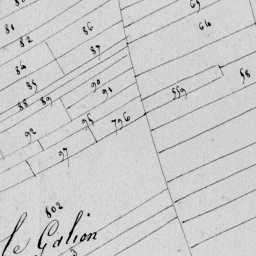 80
81
82
86
87
65
66
84
85
88
89
90
91
559
58
92
95
796
97
802
le Galion